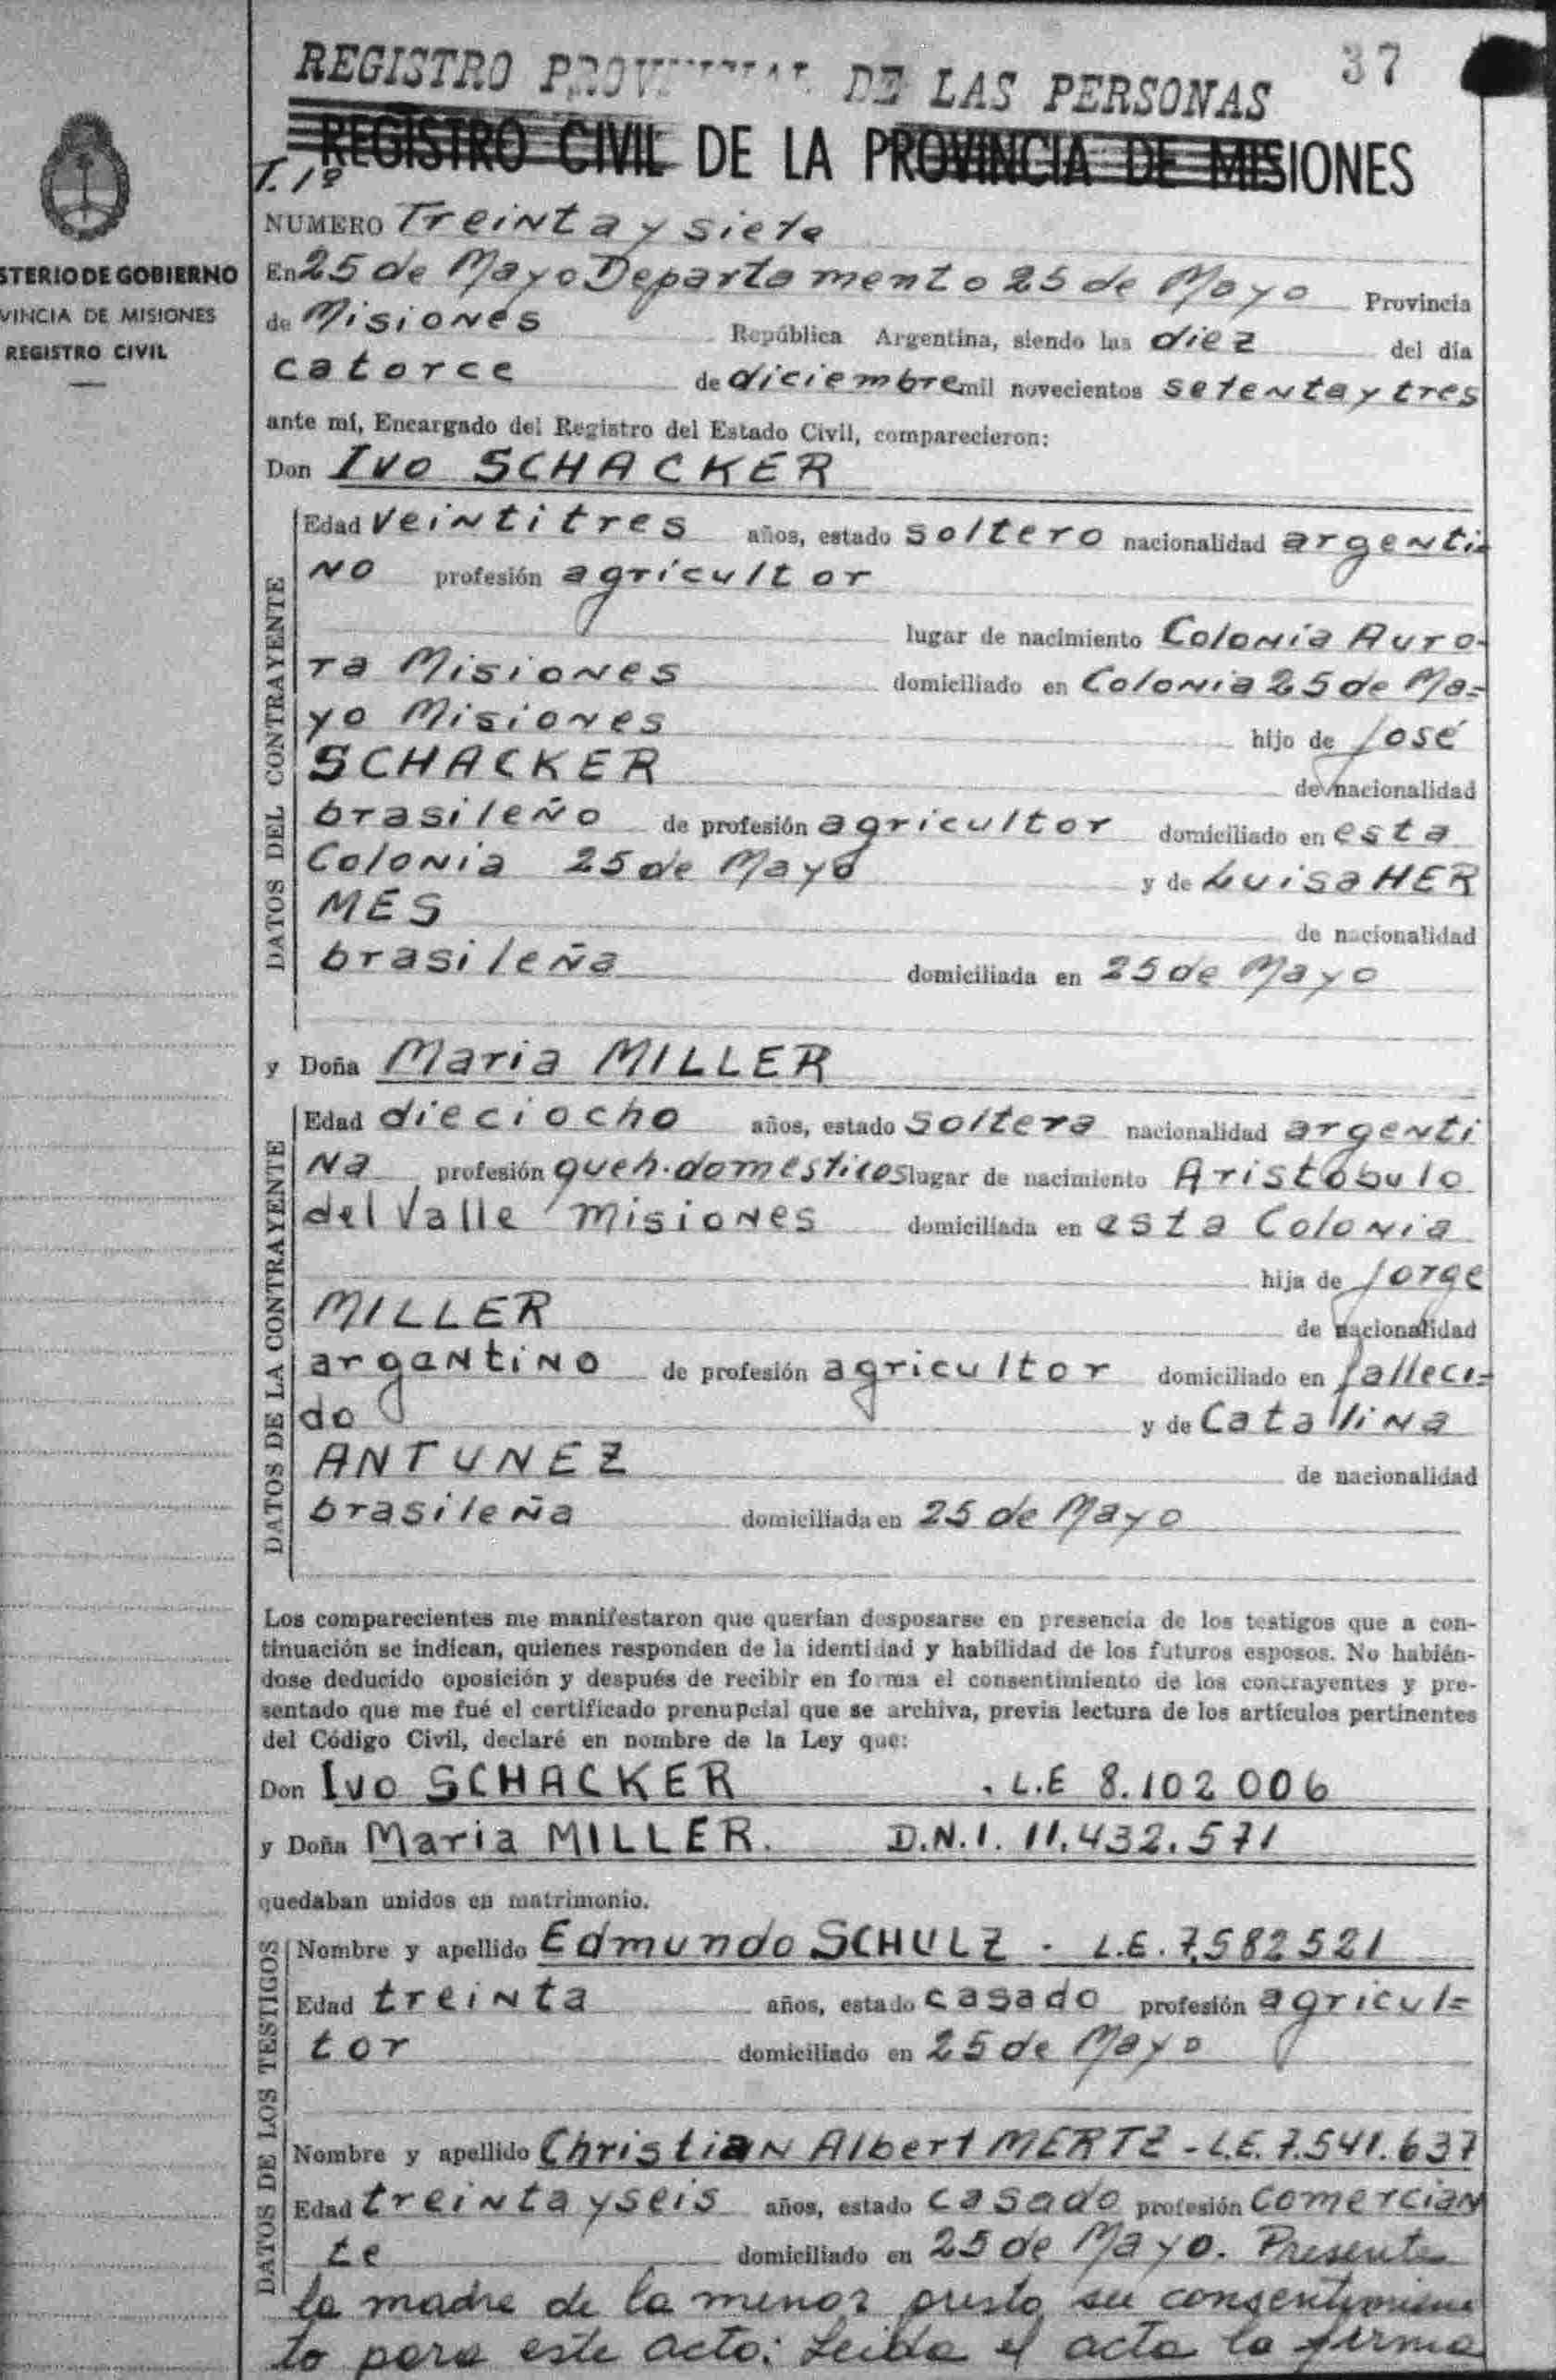 37
REGISTRO PROVINCIAL DE LAS PERSONAS
REGISTRO CIVIL DE LA PROVINCIA DE MISIONES
T. 1º
STERIO DE GOBIERNO
VINCIA DE MISIONES
REGISTRO CIVIL
NUMERO Treinta y siete
En 25 de Mayo Departamento 25 de Mayo Provincia
de Misiones República Argentina, siendo las diez del día
catorce de diciembre mil novecientos setenta y tres
ante mí, Encargado del Registro del Estado Civil, comparecieron:
Don Ivo SCHACKER
DATOS DEL CONTRAYENTE
Edad veintitres años, estado soltero nacionalidad argenti=
no profesión agricultor
lugar de nacimiento Colonia Auro-
ra Misiones domiciliado en Colonia 25 de Ma=
yo Misiones hijo de José
SCHACKER de nacionalidad
brasileño de profesión agricultor domiciliado en esta
Colonia 25 de Mayo y de Luisa HER
MES de nacionalidad
brasileña domiciliada en 25 de Mayo
y Doña Maria MILLER
DATOS DE LA CONTRAYENTE
Edad dieciocho años, estado soltera nacionalidad argenti
na profesión queh. domesticos lugar de nacimiento Aristobulo
del Valle Misiones domiciliada en esta Colonia
hija de Jorge
MILLER de nacionalidad
argentino de profesión agricultor domiciliado en falleci=
do y de Catalina
ANTUNEZ de nacionalidad
brasileña domiciliada en 25 de Mayo
Los comparecientes me manifestaron que querían desposarse en presencia de los testigos que a con-
tinuación se indican, quienes responden de la identidad y habilidad de los futuros esposos. No habién-
dose deducido oposición y después de recibir en forma el consentimiento de los contrayentes y pre-
sentado que me fué el certificado prenupcial que se archiva, previa lectura de los artículos pertinentes
del Código Civil, declaré en nombre de la Ley que:
Don Ivo SCHACKER . L.E 8.102 006
y Doña Maria MILLER. D.N.I. 11.432.571
quedaban unidos en matrimonio.
DATOS DE LOS TESTIGOS
Nombre y apellido Edmundo SCHULZ - L.E. 7.582521
Edad treinta años, estado casado profesión agricul=
tor domiciliado en 25 de Mayo
Nombre y apellido Christian Albert MERTZ - L.E. 7.541.637
Edad treinta y seis años, estado casado profesión comercian
te domiciliado en 25 de Mayo. Presente
la madre de la menor presta su consentimien
to para este acto: Leida el acta la firma